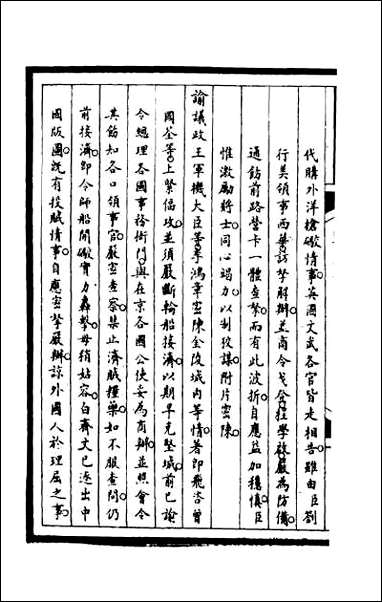 代購外洋槍礮情事英國文武各官皆走相告雖由臣劄
行美領事西華訪拏解辦並商令戈登程學啟嚴為防備
通飭前路營卡一體查拏而有此波折自應益加穩慎臣
惟激勵將士同心竭力以制狡謀附片密陳
諭議政王軍機大臣等李鴻章密陳金陵城內等情著即飛咨曾
國荃等上緊偪攻並須嚴斷輪船接濟以期早克堅城前已諭
令總理各國事務衙門與在京各國公使妥為商辦並照會令
其飭知各口領事官嚴密查察禁止濟賊糧藥如不服查問仍
前接濟即令師船開礮實力轟擊毋稍姑容白齊文已逐出中
國版圖旣有投賊情事自應密拏嚴辦諒外國人於理屈之事